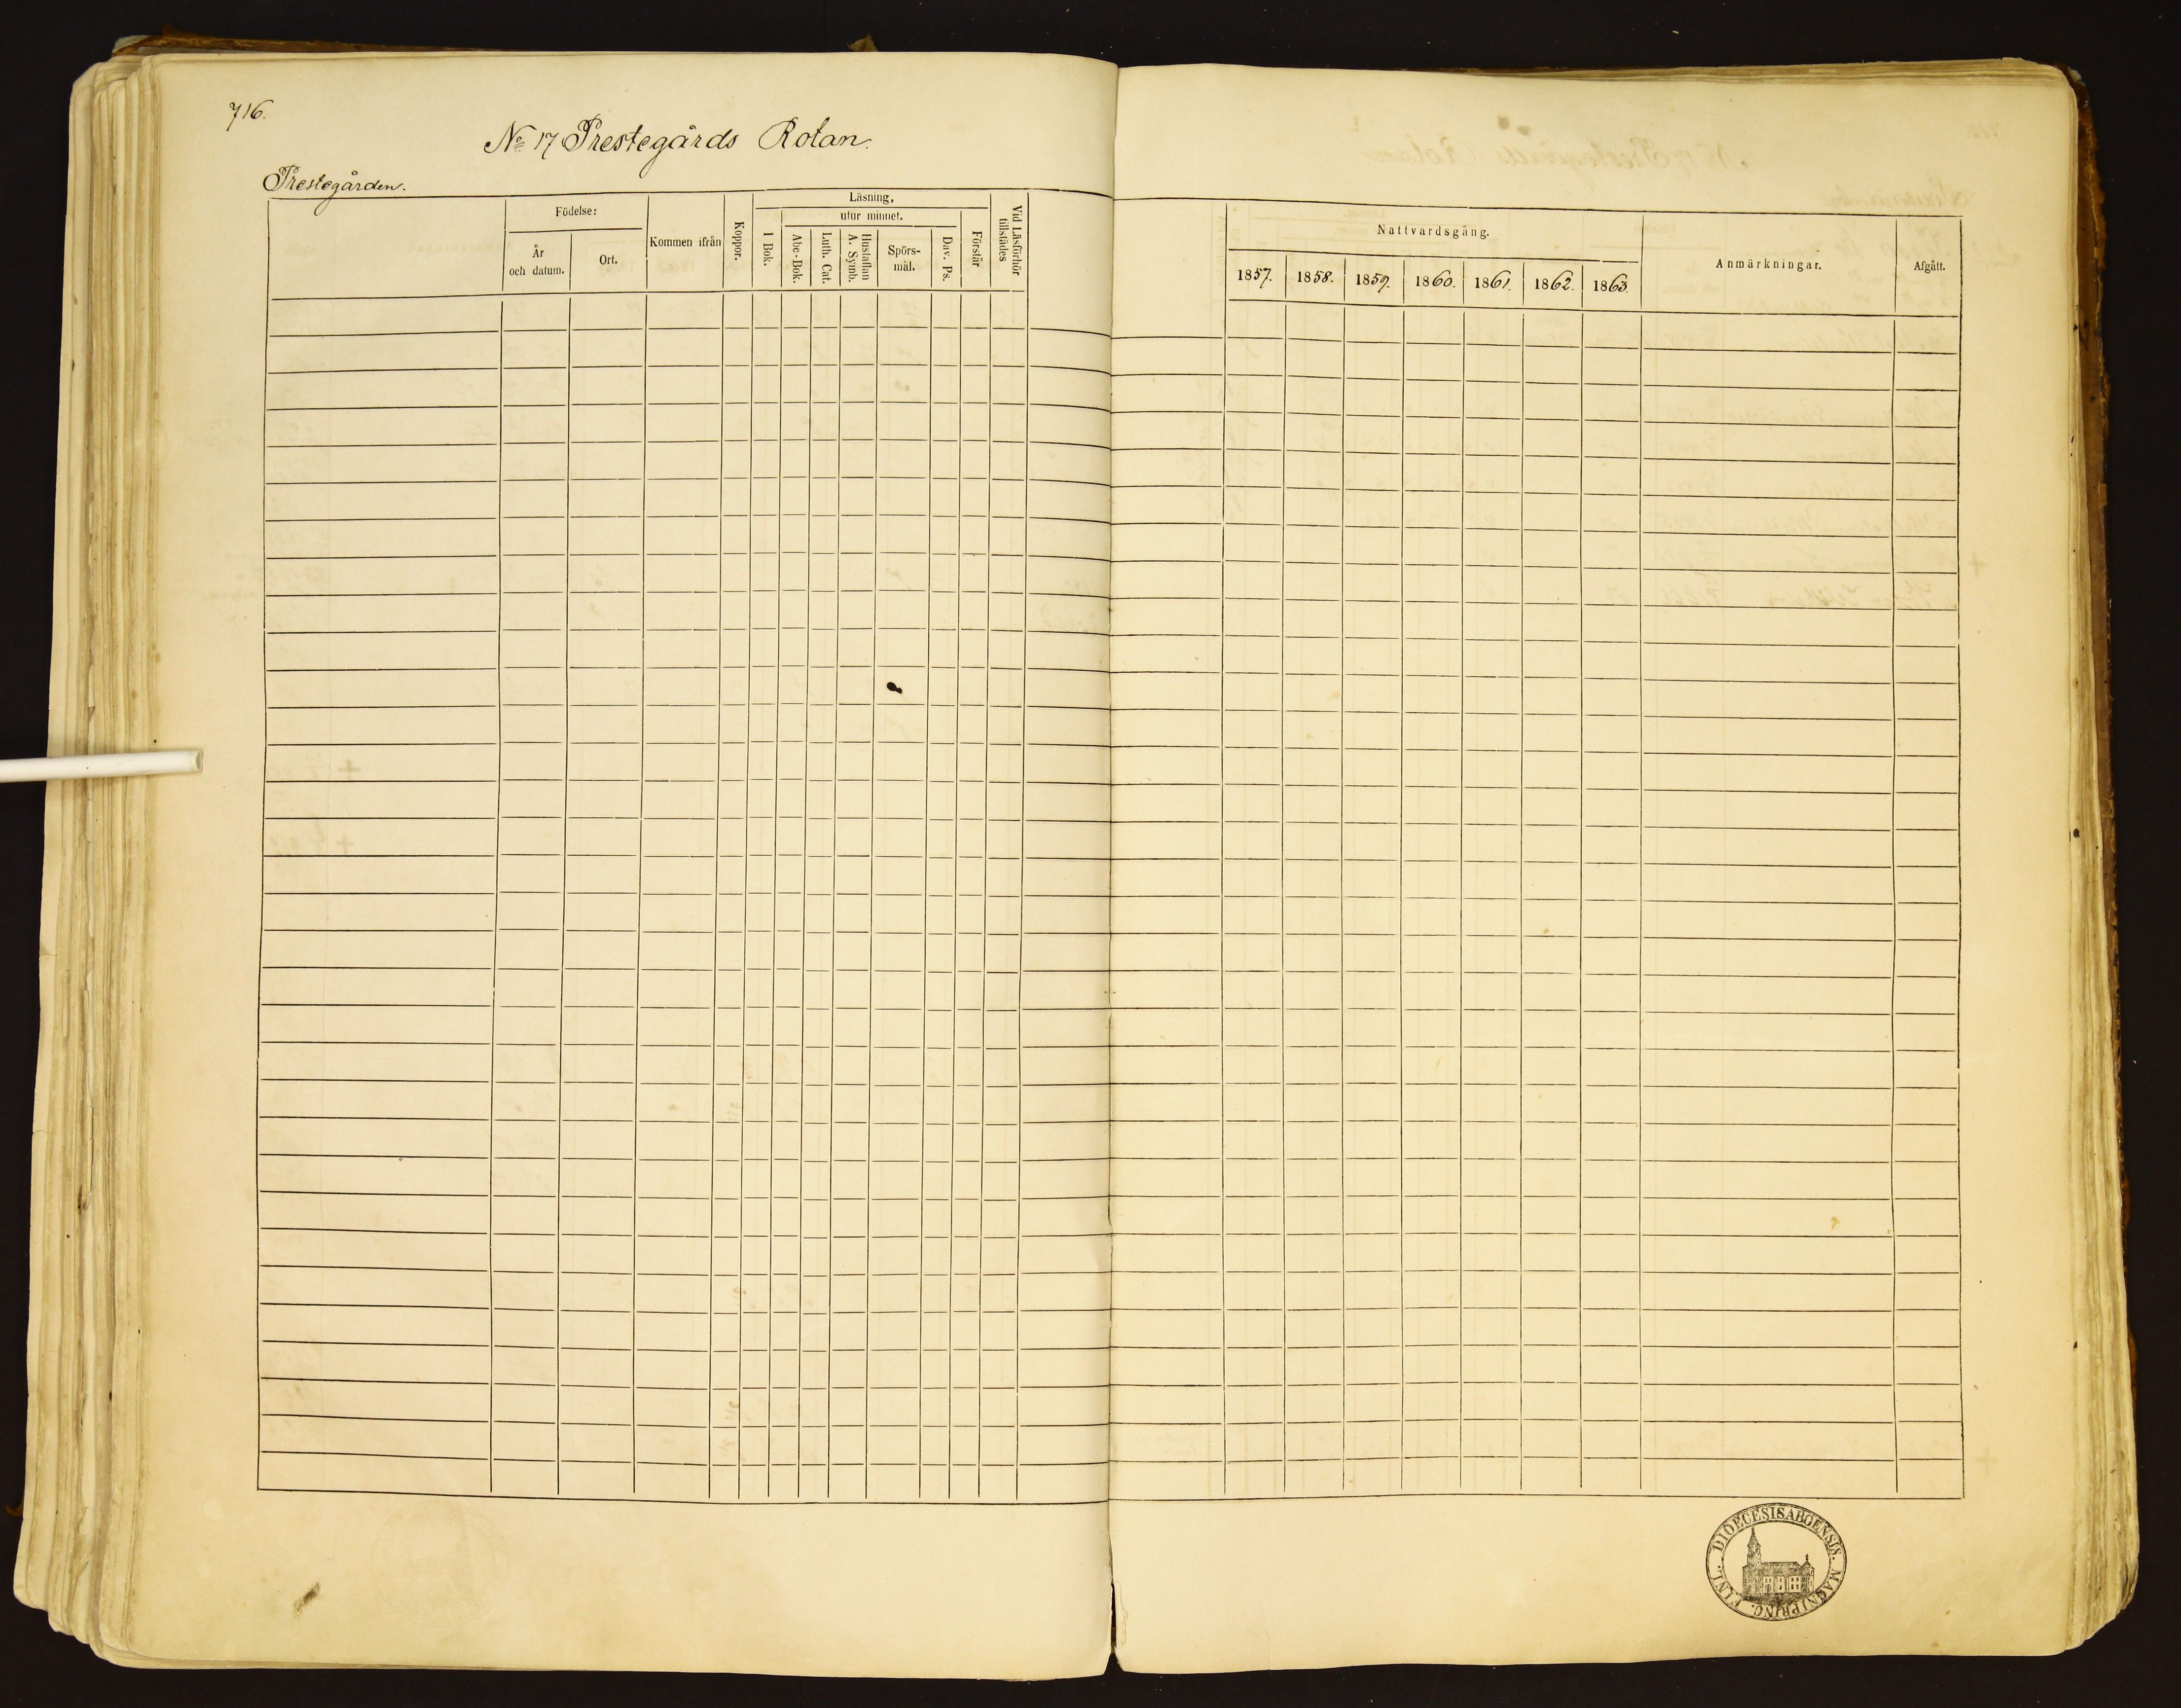 716.
No 17 Prestegårds Rotan.
Prestegården.
Födelse:
År
och datum.
Ort.
Kommen ifrån
Koppor.
Läsning,
utur minnet.
I Bok.
Abc-Bok.
Luth. Cat.
Hustaflan
A. Symb.
Spörs-
mål.
Dav. Ps.
Förstår
Vid Läsförhör
tillstädes
Nattvardsgång.
1857. 1858. 1859. 1860. 1861. 1862. 1863.
Anmärkningar.
Afgått.
DIOECESIS ABOENSIS. MAGNI PRINC. FINL.